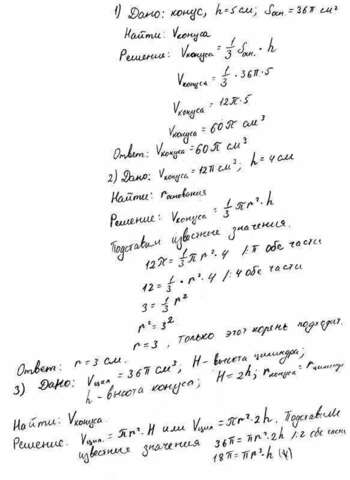 1) Дано: конус, h=5 см; Sосн.=36π см²
Найти: Vконуса
Решение: Vконуса=1/3 Sосн.·h
Vконуса=1/3·36π·5
Vконуса=12π·5
Vконуса=60π см³
Ответ: Vконуса=60π см³
2) Дано: Vконуса=12π см³; h=4 см
Найти: rоснования
Решение: Vконуса=1/3πr²·h
Подставим известные значения.
12π=1/3πr²·4 /:π обе части
12=1/3·r²·4 /:4 обе части
3=1/3r²
r²=3²
r=3, только этот корень подходит.
Ответ: r=3 см.
3) Дано: Vцил.=36π см³, H-высота цилиндра;
h-высота конуса; H=2h; rконуса=rцилиндр
Найти: Vконуса.
Решение. Vцил.=πr²·H или Vцил=πr²·2h. Подставим
известные значения 36π=πr²·2h /:2 обе части
18π=πr²·h (4)